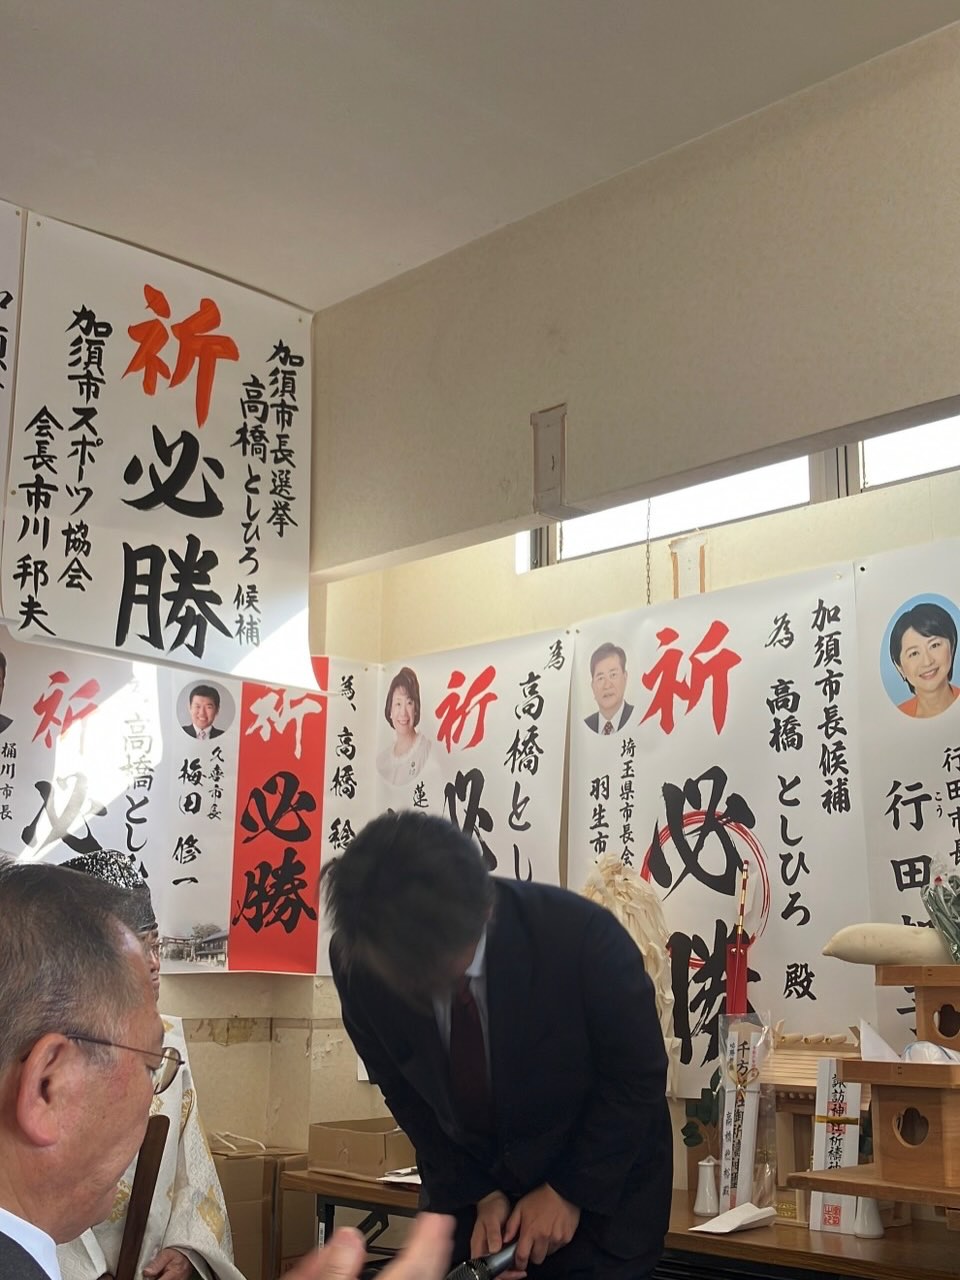 祈
必
勝
加須市長選挙
高橋としひろ 候補
加須市スポーツ協会
会長 市川 邦夫
祈
必
高橋とし
桶川市長
祈
必
勝
為、高橋
久喜市長
梅田 修一
為
高橋とし
祈
必
蓮
加須市長候補
為 高橋 としひろ 殿
祈
必
勝
埼玉県市長会
羽生市
行田市長
行田
こう
諏訪神社祈祷神